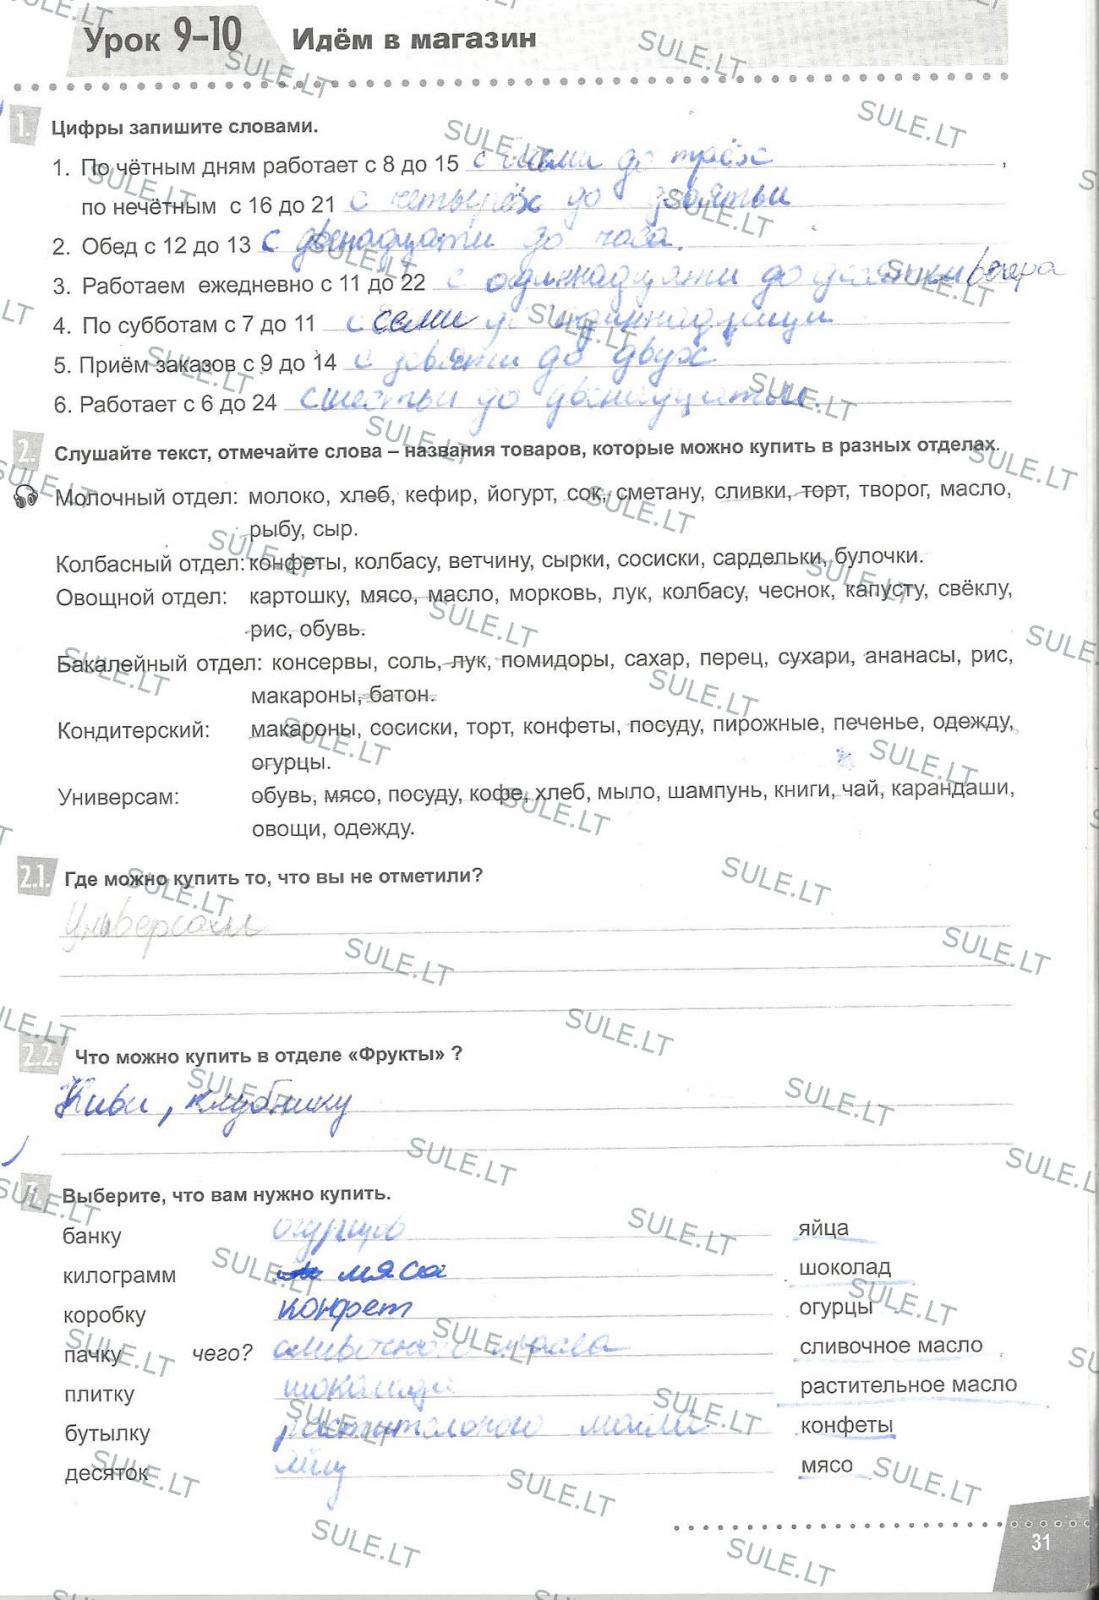 Урок 9–10 Идём в магазин
1. Цифры запишите словами.
1. По чётным дням работает с 8 до 15 с восьми до трёх,
по нечётным с 16 до 21 с четырёх до
2. Обед с 12 до 13 с двенадцати до часа.
3. Работаем ежедневно с 11 до 22 с одиннадцати до вечера
4. По субботам с 7 до 11 с семи до
5. Приём заказов с 9 до 14 с девяти до двух
6. Работает с 6 до 24 до
2. Слушайте текст, отмечайте слова – названия товаров, которые можно купить в разных отделах.
Молочный отдел: молоко, хлеб, кефир, йогурт, сок, сметану, сливки, торт, творог, масло,
рыбу, сыр.
Колбасный отдел: конфеты, колбасу, ветчину, сырки, сосиски, сардельки, булочки.
Овощной отдел: картошку, мясо, масло, морковь, лук, колбасу, чеснок, капусту, свёклу,
рис, обувь.
Бакалейный отдел: консервы, соль, лук, помидоры, сахар, перец, сухари, ананасы, рис,
макароны, батон.
Кондитерский: макароны, сосиски, торт, конфеты, посуду, пирожные, печенье, одежду,
огурцы.
Универсам: обувь, мясо, посуду, кофе, хлеб, мыло, шампунь, книги, чай, карандаши,
овощи, одежду.
2.1. Где можно купить то, что вы не отметили?
2.2. Что можно купить в отделе «Фрукты» ?
Киви, клубнику
3. Выберите, что вам нужно купить.
банку огурцов яйца
килограмм мяса шоколад
коробку конфет огурцы
пачку чего? сливочного масла сливочное масло
плитку шоколада растительное масло
бутылку масла конфеты
десяток яиц мясо
31
SULE.LT